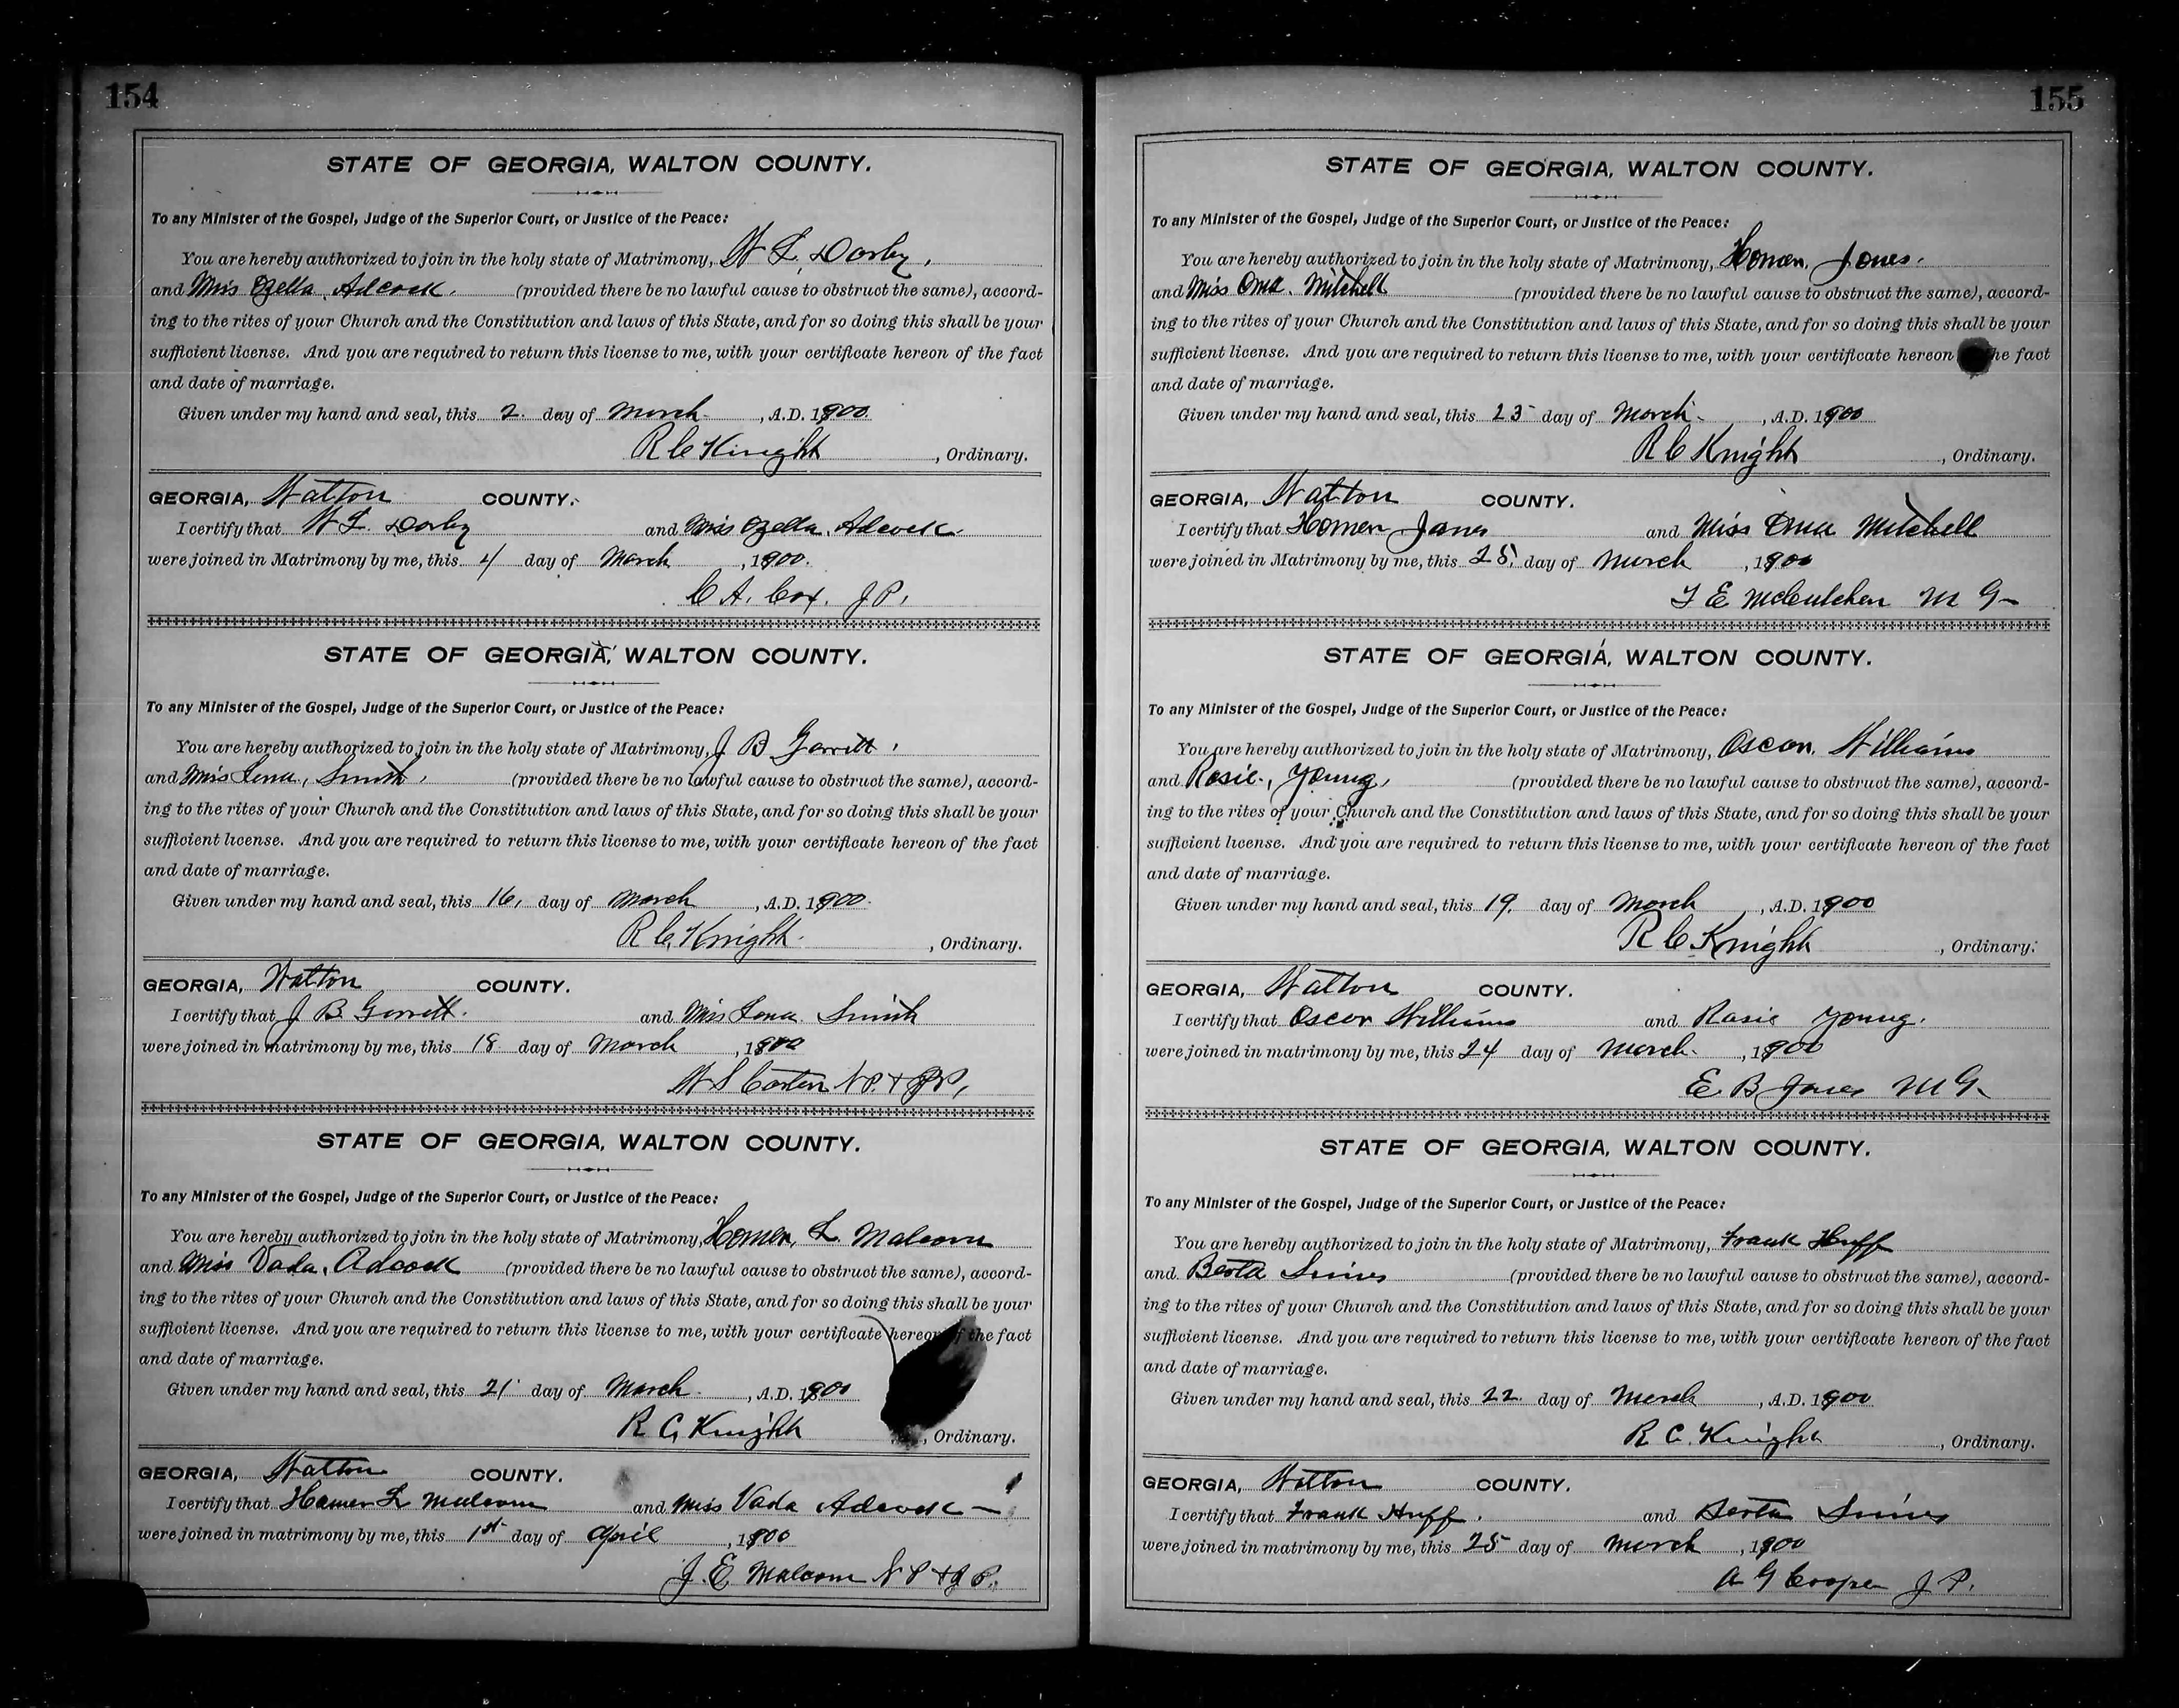 154
STATE OF GEORGIA, WALTON COUNTY.
To any Minister of the Gospel, Judge of the Superior Court, or Justice of the Peace:
You are hereby authorized to join in the holy state of Matrimony, W L Darby,
and Miss Ozella, Adcock. (provided there be no lawful cause to obstruct the same), accord-
ing to the rites of your Church and the Constitution and laws of this State, and for so doing this shall be your
sufficient license. And you are required to return this license to me, with your certificate hereon of the fact
and date of marriage.
Given under my hand and seal, this 2. day of March , A.D. 1900
R C Knight , Ordinary.
GEORGIA, Walton COUNTY.
I certify that W L. Darby and Miss Ozella, Adcock.
were joined in Matrimony by me, this 4 day of March , 1900.
C A. Cox. J P.
STATE OF GEORGIA, WALTON COUNTY.
To any Minister of the Gospel, Judge of the Superior Court, or Justice of the Peace:
You are hereby authorized to join in the holy state of Matrimony, J B Garrett,
and Miss Lena, Smith, (provided there be no lawful cause to obstruct the same), accord-
ing to the rites of your Church and the Constitution and laws of this State, and for so doing this shall be your
sufficient license. And you are required to return this license to me, with your certificate hereon of the fact
and date of marriage.
Given under my hand and seal, this 16, day of March , A.D. 1900.
R C, Knight. , Ordinary.
GEORGIA, Walton COUNTY.
I certify that J B Garrett. and Miss Lena Smith
were joined in matrimony by me, this 18 day of March , 1900
W S Carter N P. + J P,
STATE OF GEORGIA, WALTON COUNTY.
To any Minister of the Gospel, Judge of the Superior Court, or Justice of the Peace:
You are hereby authorized to join in the holy state of Matrimony, Homer, L Malcom
and Miss Vada, Adcock (provided there be no lawful cause to obstruct the same), accord-
ing to the rites of your Church and the Constitution and laws of this State, and for so doing this shall be your
sufficient license. And you are required to return this license to me, with your certificate hereon of the fact
and date of marriage.
Given under my hand and seal, this 21 day of March , A.D. 1900
R C, Knight , Ordinary.
GEORGIA, Walton COUNTY.
I certify that Homer L Malcom and Miss Vada Adcock
were joined in matrimony by me, this 1st day of April , 1900
J. E. Malcom N P + J P.
155
STATE OF GEORGIA, WALTON COUNTY.
To any Minister of the Gospel, Judge of the Superior Court, or Justice of the Peace:
You are hereby authorized to join in the holy state of Matrimony, Homer, Jones.
and Miss Oma. Mitchell (provided there be no lawful cause to obstruct the same), accord-
ing to the rites of your Church and the Constitution and laws of this State, and for so doing this shall be your
sufficient license. And you are required to return this license to me, with your certificate hereon the fact
and date of marriage.
Given under my hand and seal, this 23 day of March , A.D. 1900
R C Knight , Ordinary.
GEORGIA, Walton COUNTY.
I certify that Homer Jones and Miss Oma Mitchell
were joined in Matrimony by me, this 25, day of March , 1900
T E McCutchen M G
STATE OF GEORGIA, WALTON COUNTY.
To any Minister of the Gospel, Judge of the Superior Court, or Justice of the Peace:
You are hereby authorized to join in the holy state of Matrimony, Oscar, Williams
and Rosie, Young, (provided there be no lawful cause to obstruct the same), accord-
ing to the rites of your Church and the Constitution and laws of this State, and for so doing this shall be your
sufficient license. And you are required to return this license to me, with your certificate hereon of the fact
and date of marriage.
Given under my hand and seal, this 19. day of March , A.D. 1900
R C Knight , Ordinary.
GEORGIA, Walton COUNTY.
I certify that Oscar Williams and Rosie Young.
were joined in matrimony by me, this 24 day of March. , 1900
E B Jones M G
STATE OF GEORGIA, WALTON COUNTY.
To any Minister of the Gospel, Judge of the Superior Court, or Justice of the Peace:
You are hereby authorized to join in the holy state of Matrimony, Frank Huff
and Berta (provided there be no lawful cause to obstruct the same), accord-
ing to the rites of your Church and the Constitution and laws of this State, and for so doing this shall be your
sufficient license. And you are required to return this license to me, with your certificate hereon of the fact
and date of marriage.
Given under my hand and seal, this 22 day of March , A.D. 1900
R C. Knight , Ordinary.
GEORGIA, Walton COUNTY.
I certify that Frank Huff. and Berta
were joined in matrimony by me, this 25 day of March , 1900
A G Cooper J P.